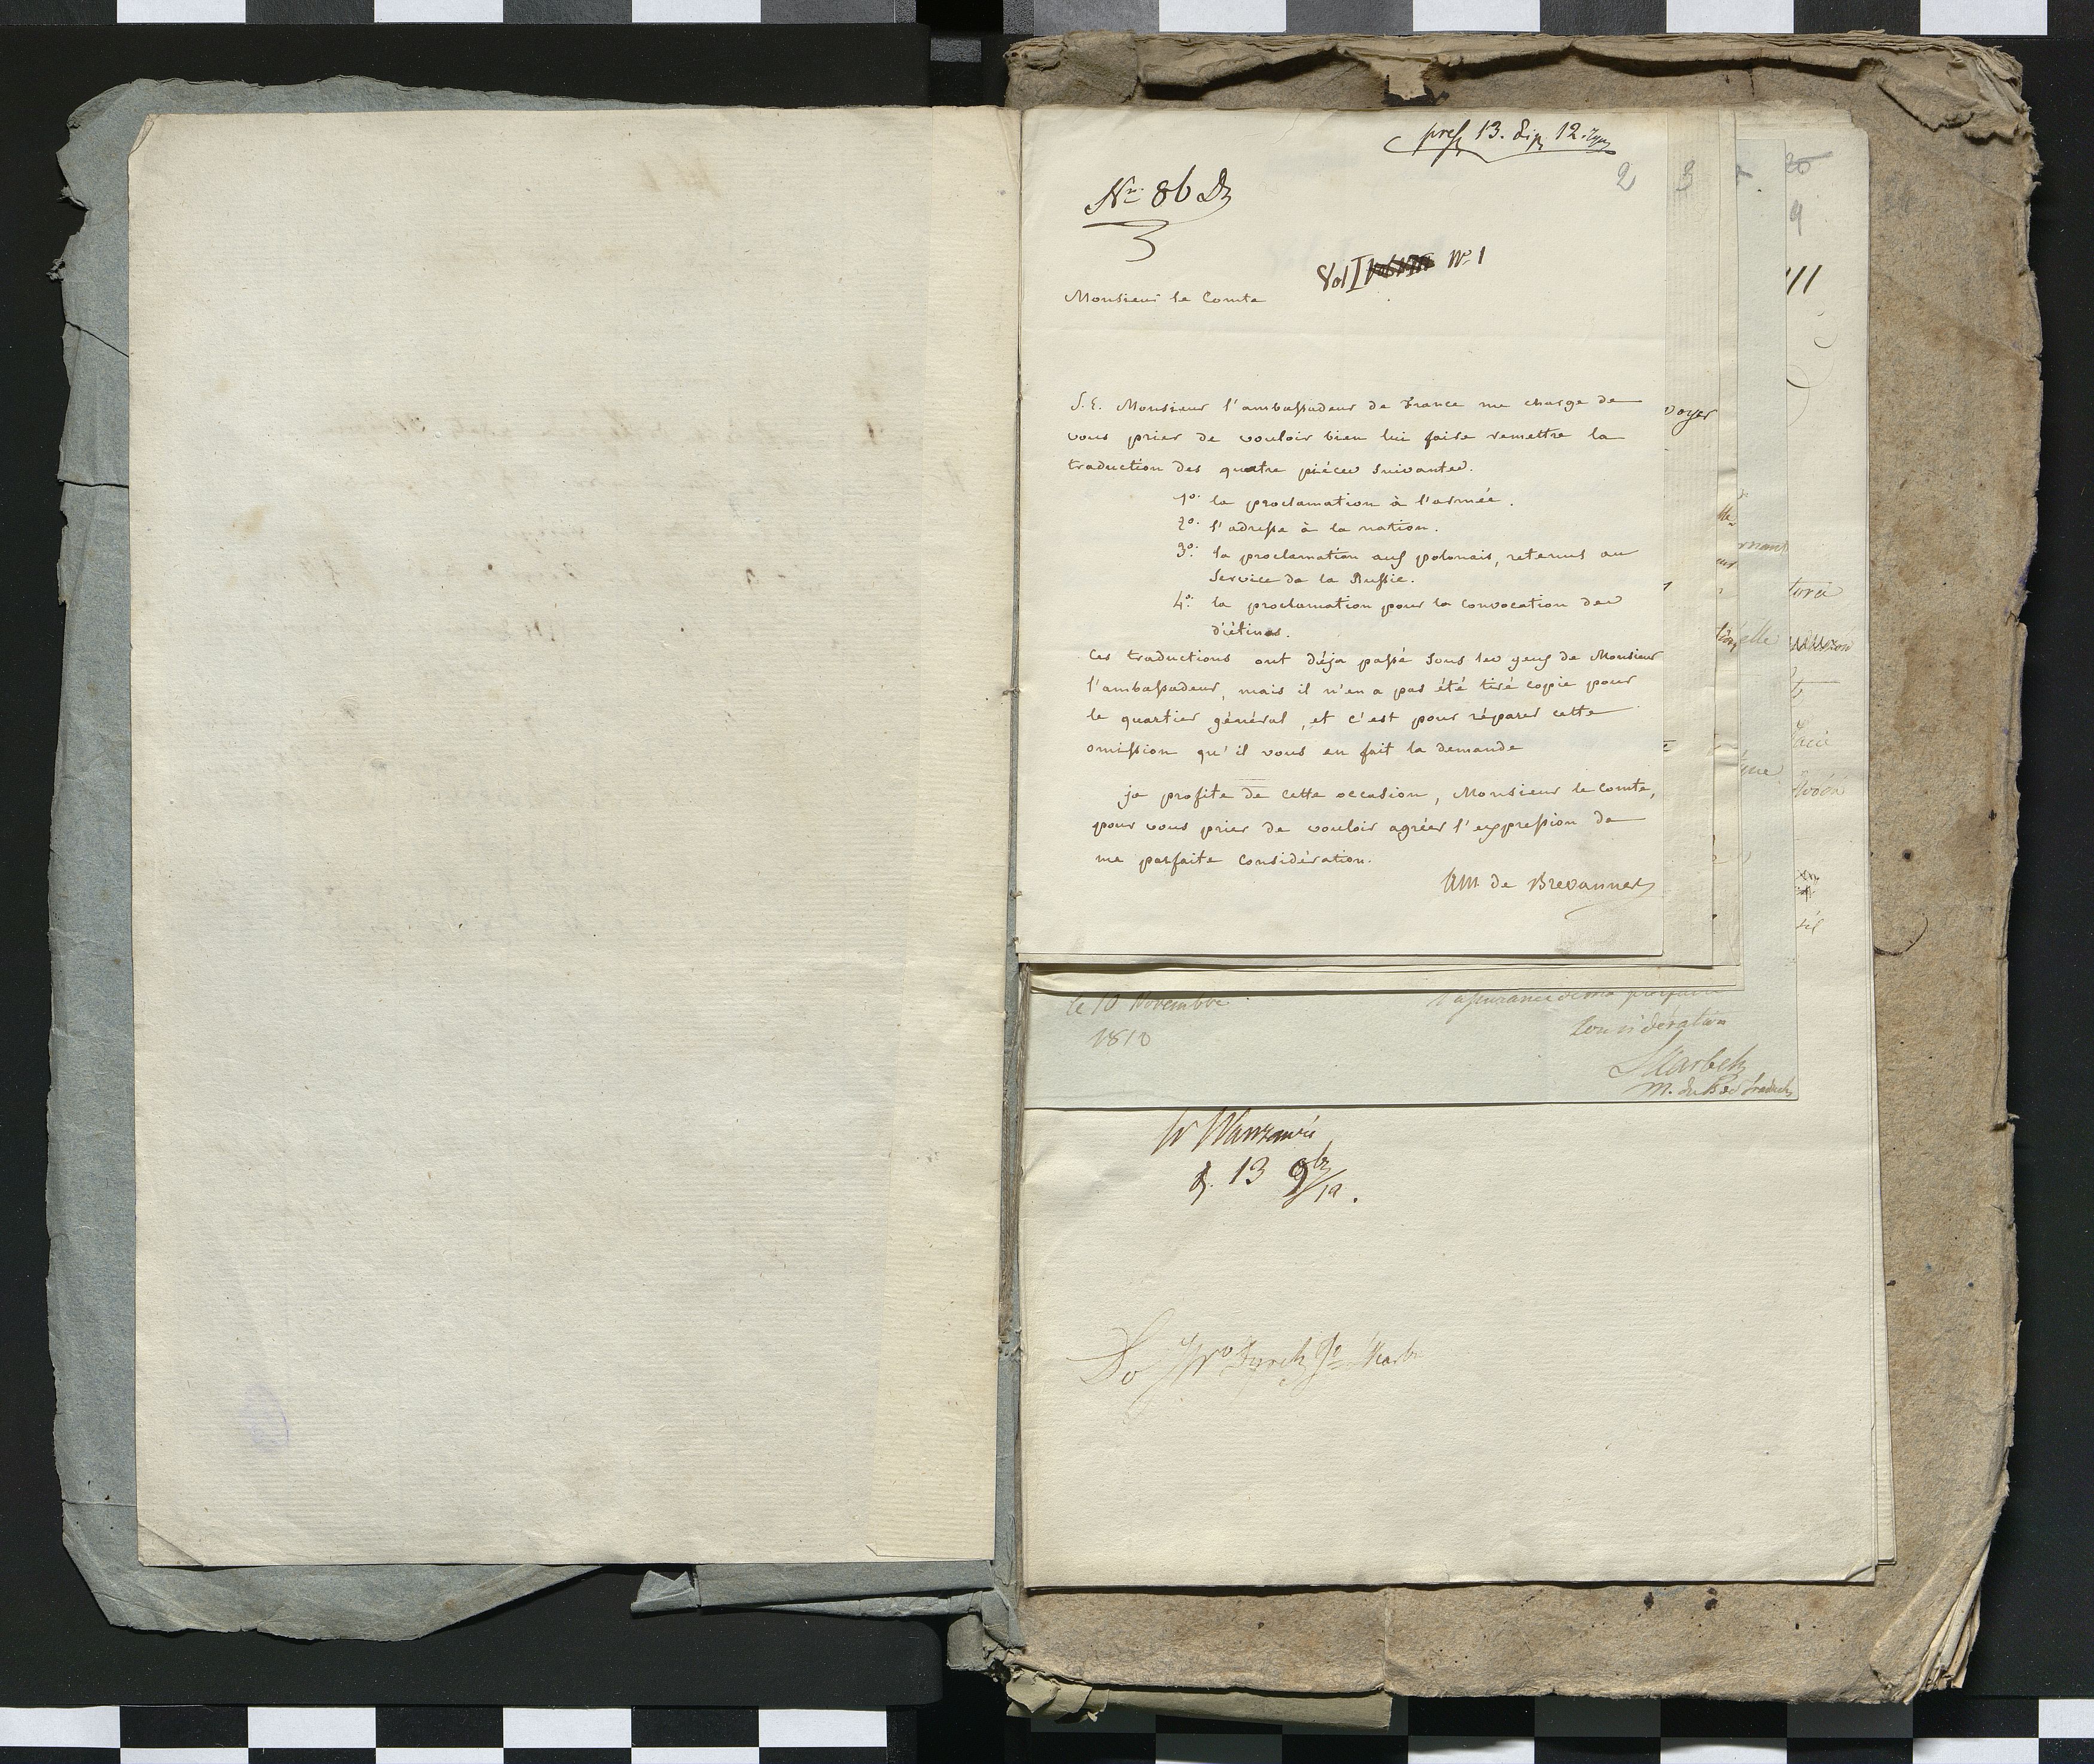 13. 12.
2
3
Nro 86
Vol I No 1
Monsieur le Comte
S. E. Monsieur l'ambassadeur de France me charge de
vous prier de vouloir bien lui faire remettre la
traduction des quatre piéces suivantes.
1o. la proclamation à l'armée.
2o. l'adresse à la nation.
3o. la proclamation aux polonais, retenus au
service de la Russie.
4o. la proclamation pour la convocation des
diétines.
Ces traductions ont déja passé sous les yeux de Monsieur
l'ambassadeur, mais il n'en a pas été tiré copie pour
le quartier général, et c'est pour réparer cette
omission qu'il vous en fait la demande
je profite de cette occasion, Monsieur le Comte,
pour vous prier de vouloir agréer l'expression de
ma parfaite considération.
AM de Brevannes
voyer
elle
le 10 Novembre
1810
l'assurance de ma parfaite
considération
Skarbek
W Warszawie
d. 13 9br
Do